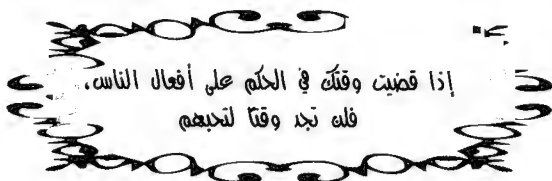 إذا قضيت وقتك في الحكم على أفعال الناس،
فلن تجد وقتا لتحبهم